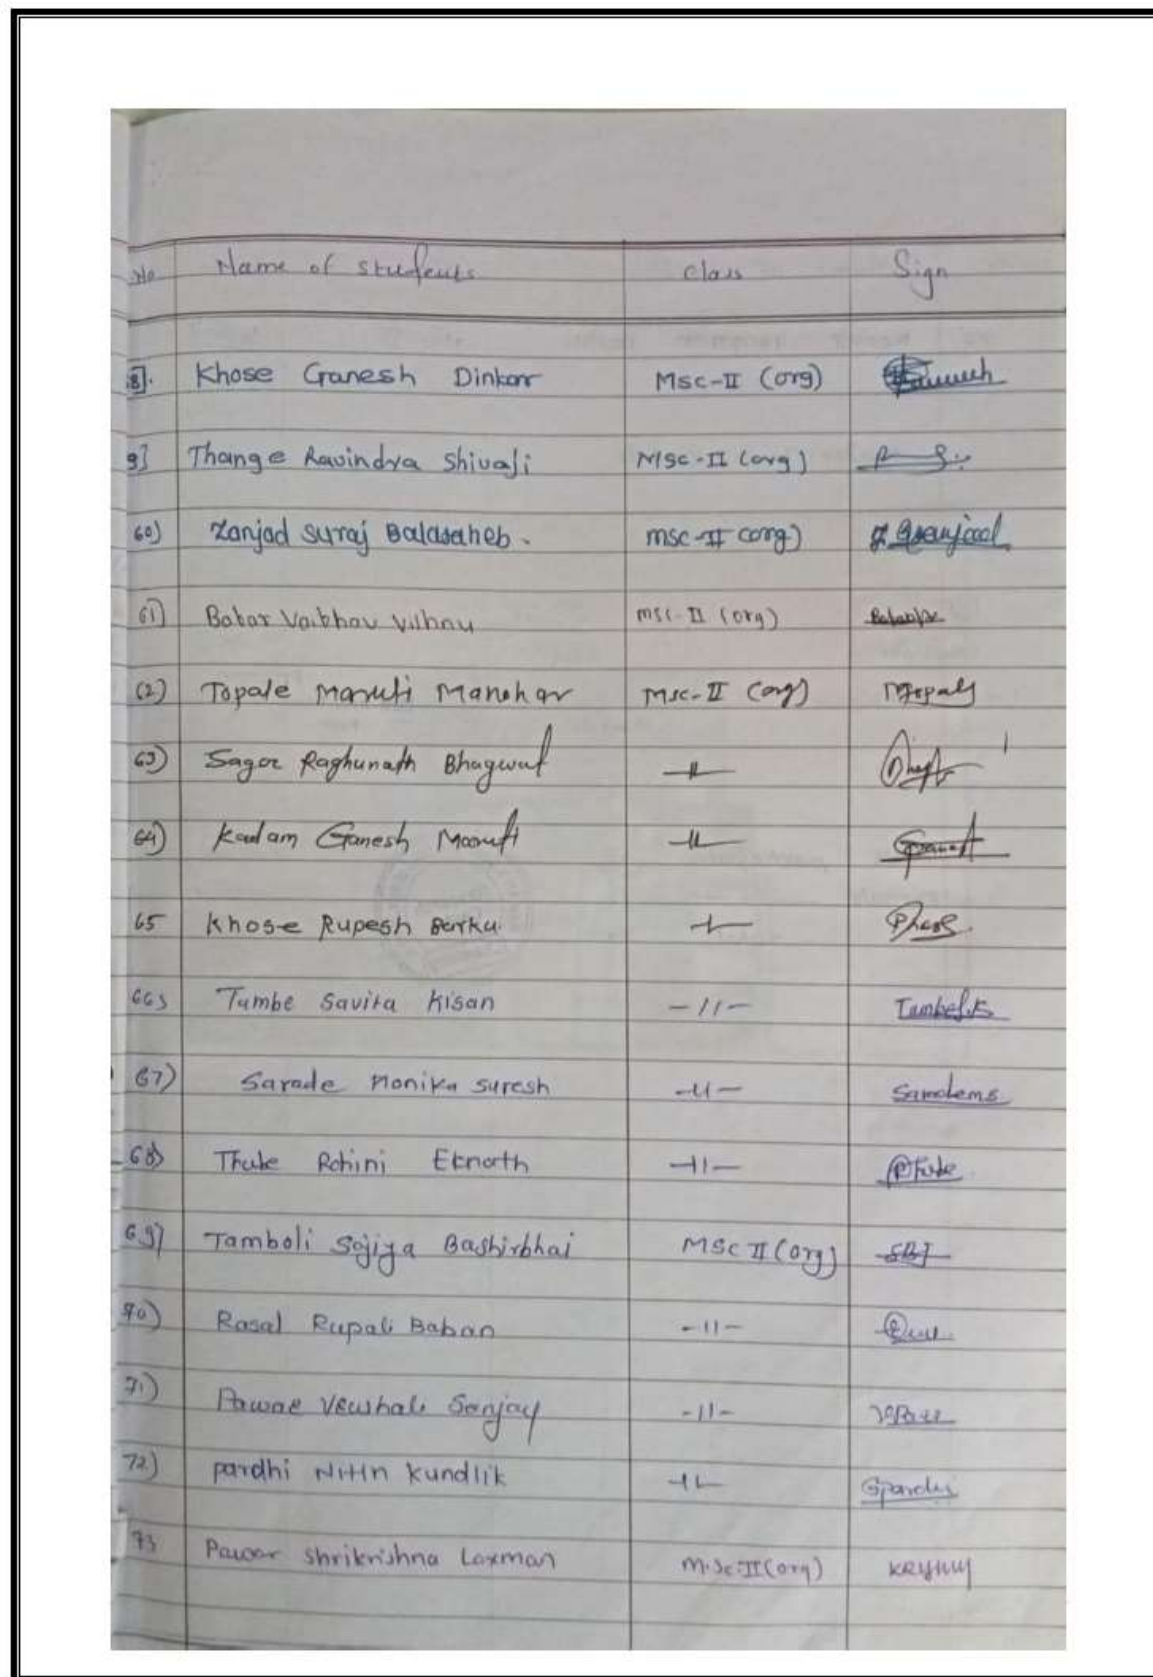 No Name of students class Sign
8]. Khose Ganesh Dinkar Msc-II (org)
9] Thange Ravindra Shivaji Msc-II (org)
60) Zanjad Suraj Balasaheb. msc-II (org)
61) Babar Vaibhav Vishnu msc-II (org)
62) Topale Maruti Manohar Msc-II (org)
63) Sagar Raghunath Bhagwat -11-
64) Kadam Ganesh Maruti -11-
65 Khose Rupesh Barku. -11-
66) Tambe Savita Kisan -11-
67) Sarade Monika Suresh -11- Sarodems
68) Thube Rohini Eknath -11-
69) Tamboli Sojiya Bashirbhai MSC II (org) SBT
70) Rasal Rupali Baban -11-
71) Pawar Vrushali Sanjay -11-
72) pardhi Nitin kundlik -11-
73 Pawar Shrikrishna Laxman M.Sc.II(org)